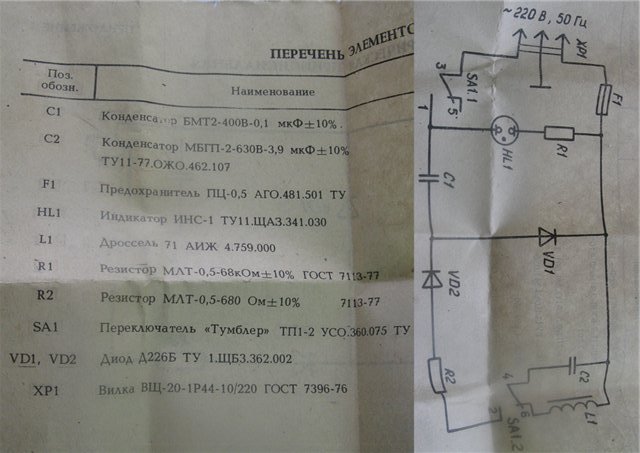 ПЕРЕЧЕНЬ ЭЛЕМЕНТО
Поз.
обозн.
Наименование
C1 Конденсатор БМТ2-400В-0,1 мкФ±10%
C2 Конденсатор МБГП-2-630В-3,9 мкФ±10%
ТУ11-77.ОЖО.462.107
F1 Предохранитель ПЦ-0,5 АГО.481.501 ТУ
HL1 Индикатор ИНС-1 ТУ11.ЩАЗ.341.030
L1 Дроссель 71 АИЖ 4.759.000
R1 Резистор МЛТ-0,5-68кОм±10% ГОСТ 7113-77
R2 Резистор МЛТ-0,5-680 Ом±10% 7113-77
SA1 Переключатель «Тумблер» ТП1-2 УСО.360.075 ТУ
VD1, VD2 Диод Д226Б ТУ 1.ЩБ3.362.002
XP1 Вилка ВЩ-20-1Р44-10/220 ГОСТ 7396-76
~ 220 В, 50 Гц
XP1
3
SA1.1
5
F1
1
HL1
R1
C1
VD1
VD2
R2
4
C2
6
L1
2
SA1.2